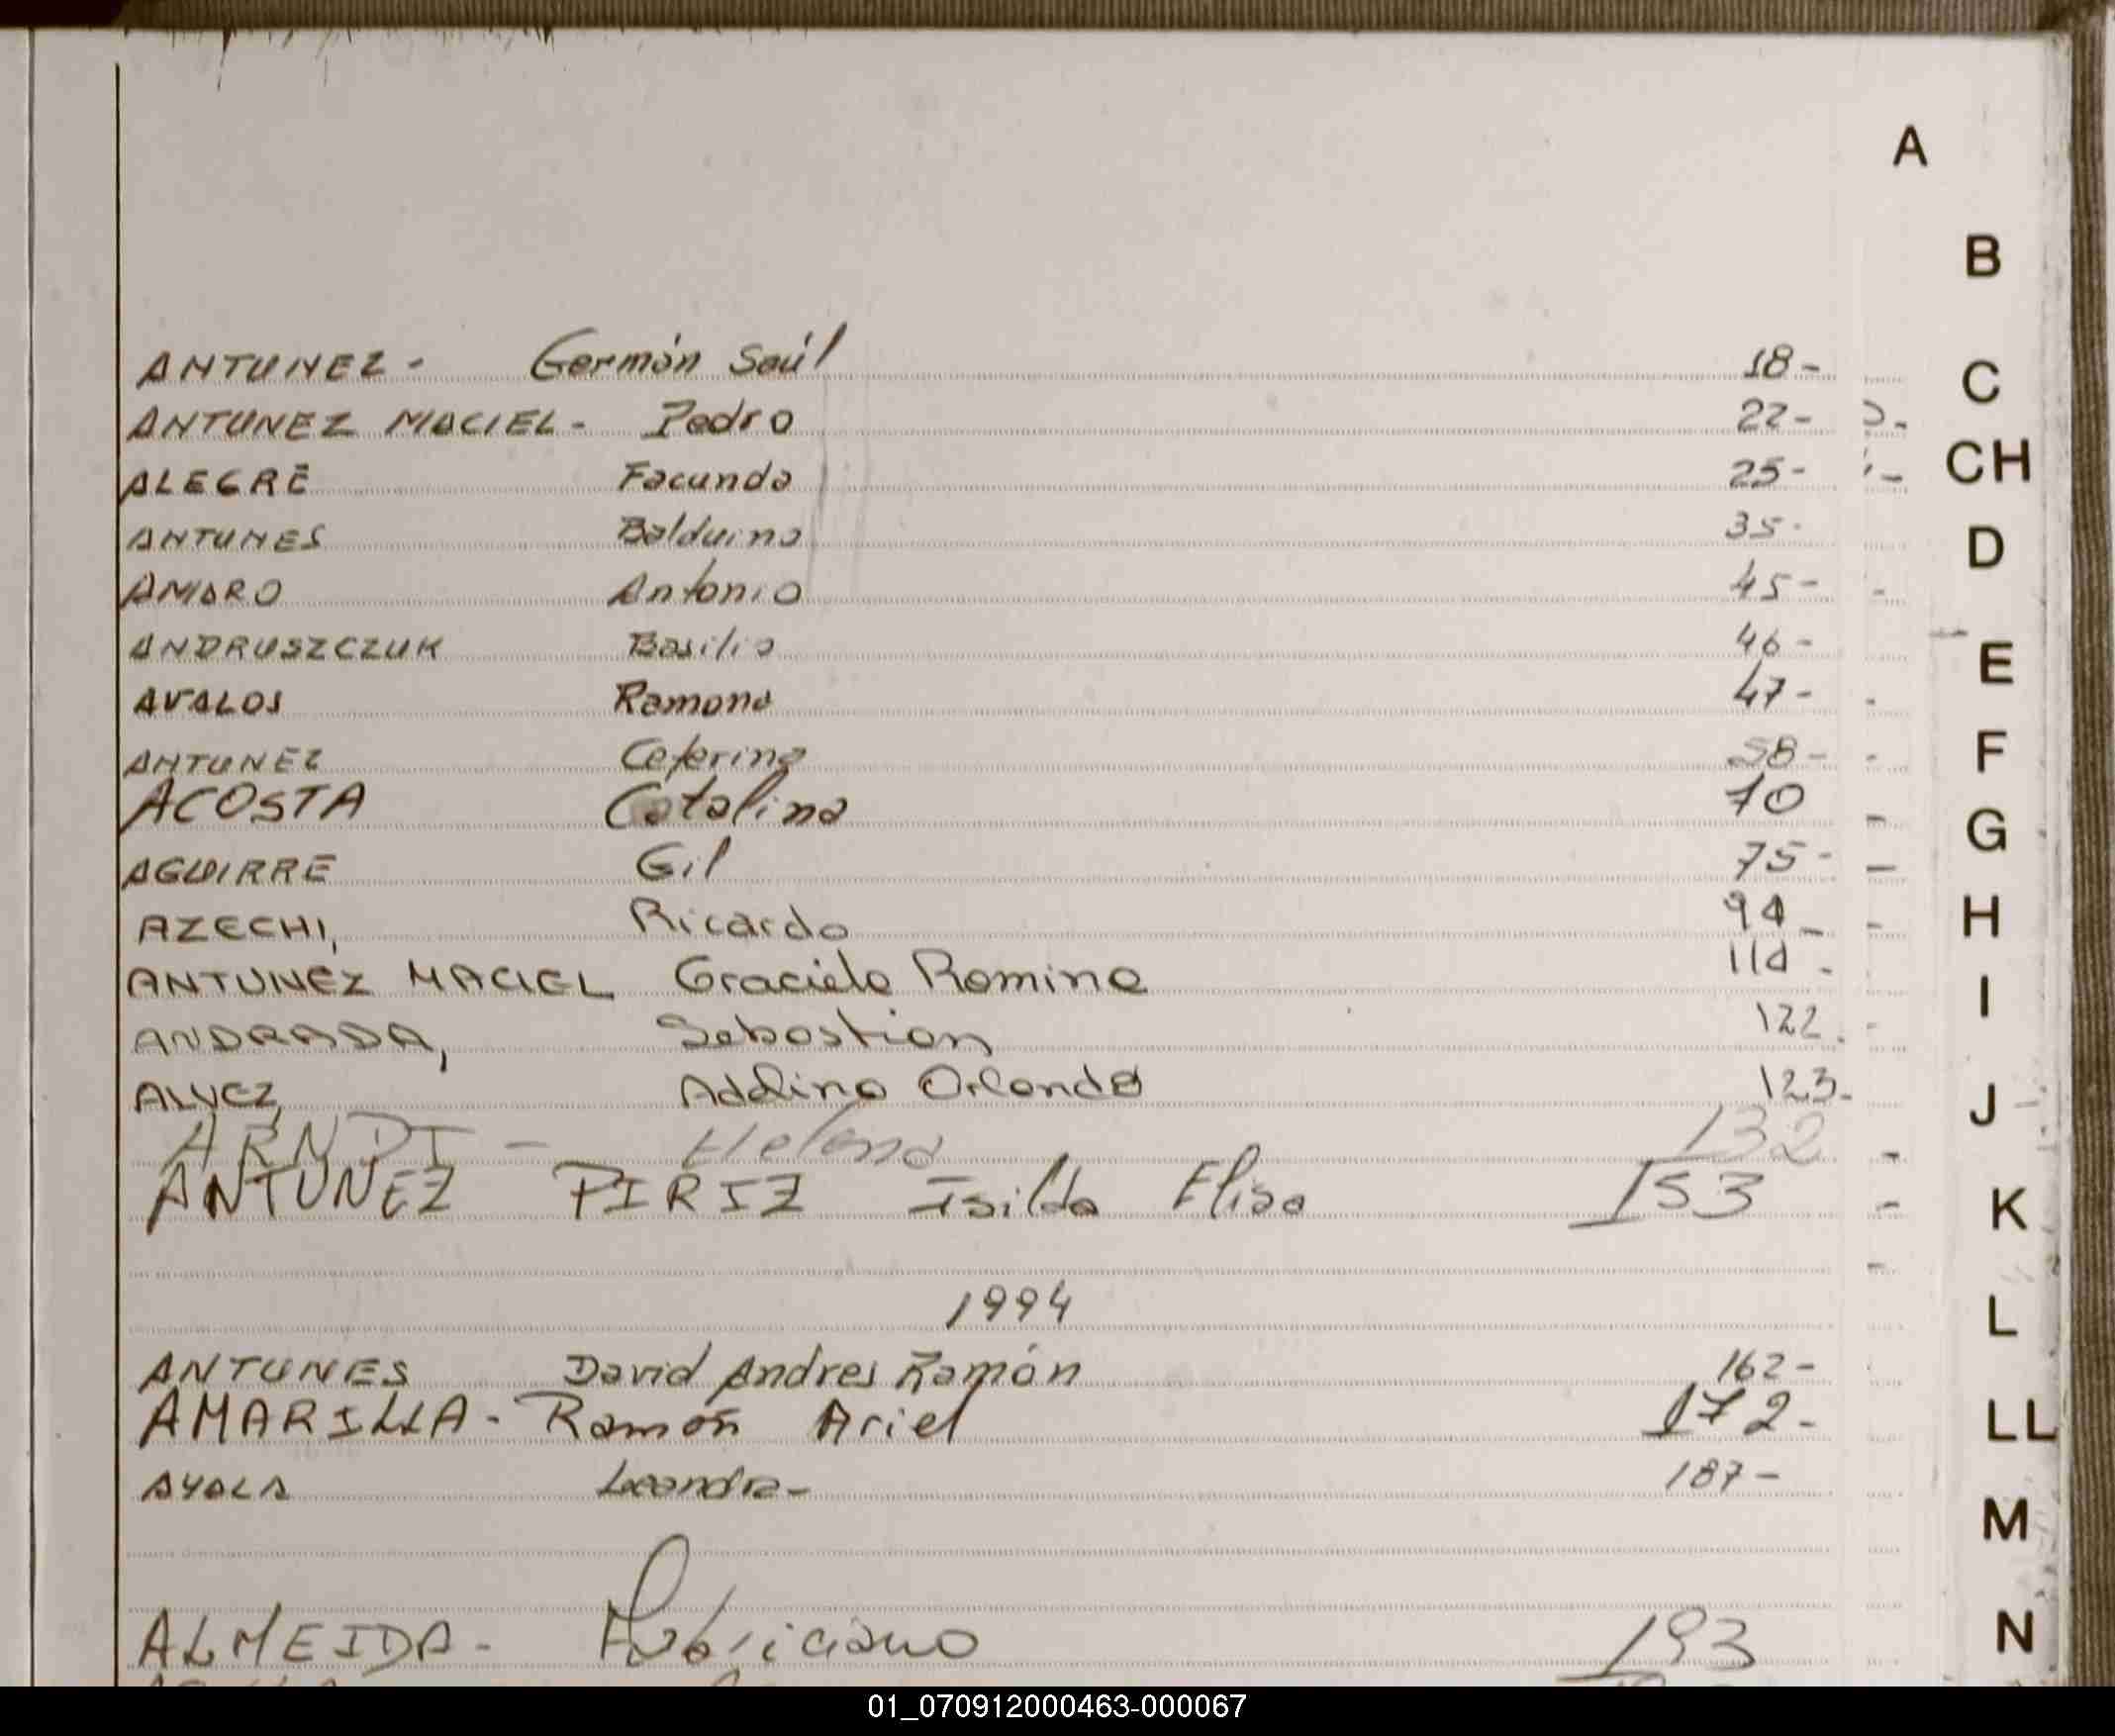 A
B
C
CH
D
E
F
G
H
I
J
K
L
LL
M
N
ANTUNEZ - Germán Saúl 18-
ANTUNEZ MACIEL - Pedro 22-
ALEGRE Facunda 25-
ANTUNES Balduino 35-
AMARO Antonio 45-
ANDRUSZCZUK Basilio 46-
AVALOS Ramona 47-
ANTUNEZ Ceferino 58-
ACOSTA Catalina 70
AGUIRRE Gil 75-
AZECHI, Ricardo 94-
ANTUNEZ MACIEL Graciela Romina 114-
ANDRADA, Sebastian 122.
ALVEZ, Adelino Orlando 123-
ARNDT - Helena 132
ANTUNEZ PIRIZ Isilda Elisa 153
1994
ANTUNES David Andres Ramón 162-
AMARILLA - Ramón Ariel 172-
AYALA Leandra- 187-
ALMEIDA - 193
01_070912000463-000067